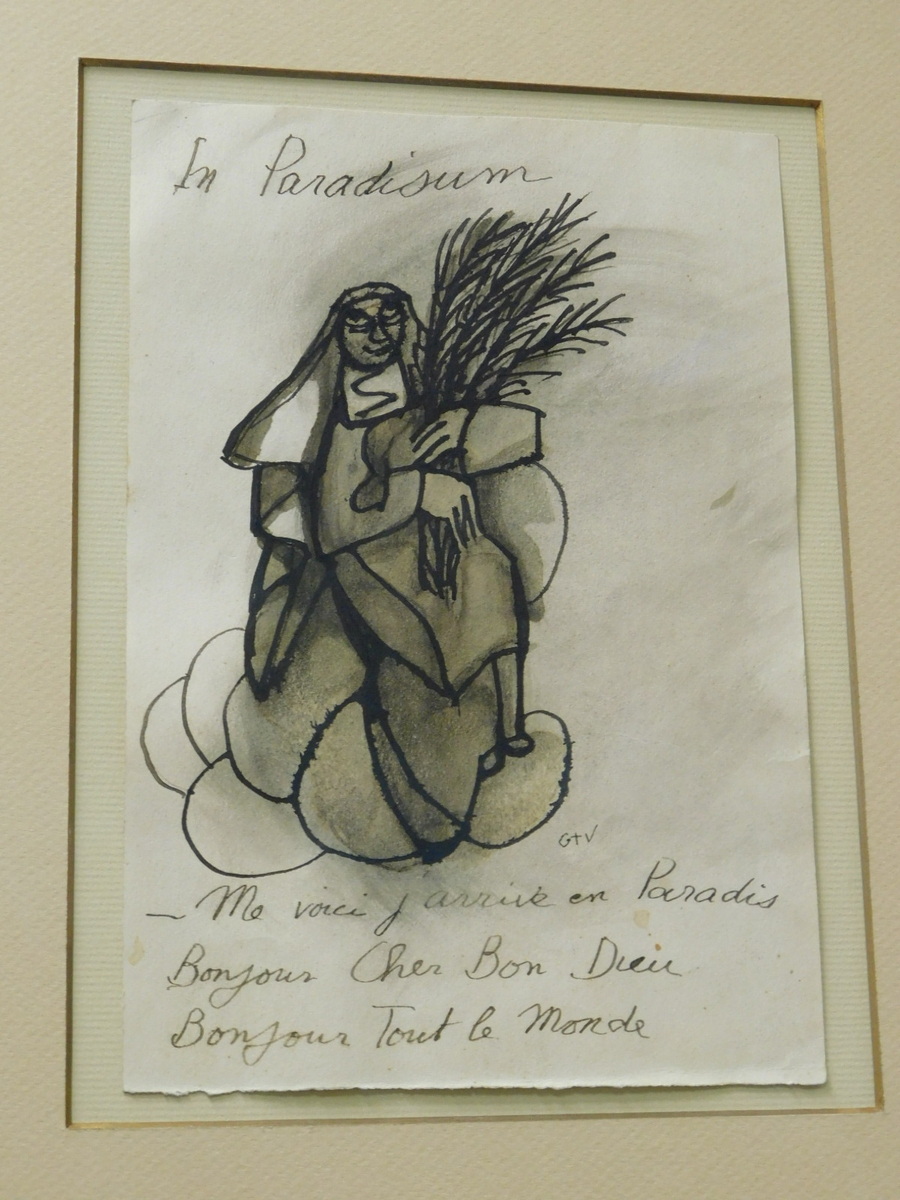 In Paradisum
G+V
— Me voici j arrive en Paradis
Bonjour Cher Bon Dieu
Bonjour Tout le Monde